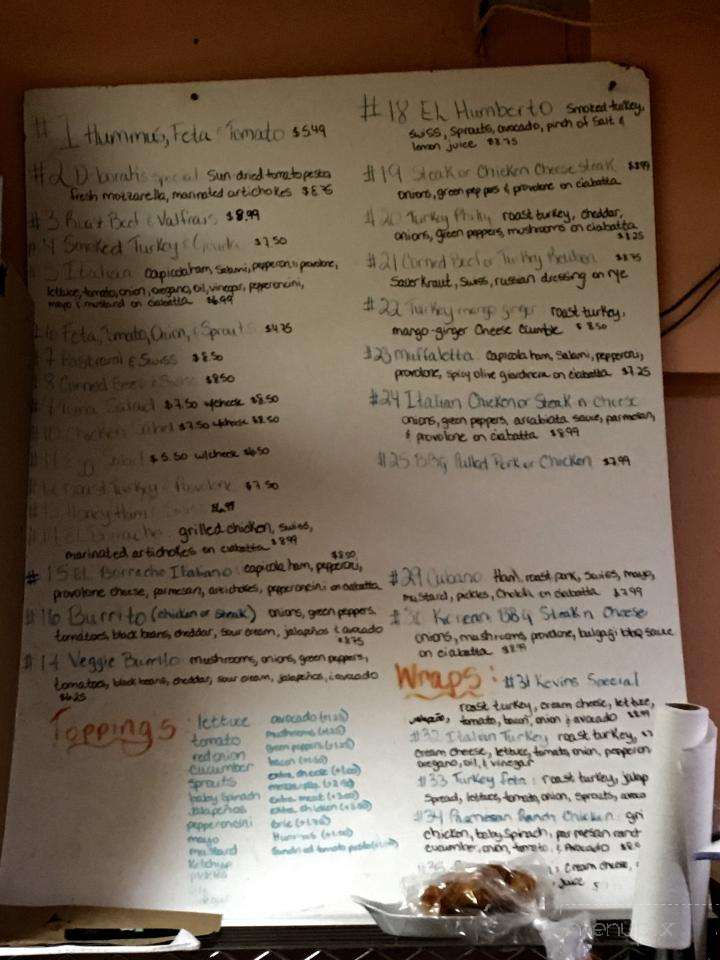 #1 Hummus, Feta & Tomato $5.49
special Sun dried tomato pesto
fresh mozzarella, marinated artichokes $8.75
#3 Roast Beef & $8.99
#4 Smoked Turkey & $7.50
#5 Italian Capicola ham, Salami, pepperoni, provolone,
lettuce, tomato, onion, oregano, oil, vinegar, pepperoncini,
mayo & mustard on ciabatta $6.99
#6 Feta, Tomato, Onion, & Sprouts $4.75
#7 Pastrami & Swiss $8.50
#8 Corned Beef & Swiss $8.50
Tuna Salad $7.50 w/cheese $8.50
#10 Chicken Salad $7.50 w/cheese $8.50
Egg Salad $5.50 w/cheese $6.50
Roast Turkey & Provolone $7.50
Honey Ham
grilled chicken, swiss,
marinated artichokes on ciabatta $8.99
#15 EL Borracho Italiano: capicola ham, pepperoni, $8.50
provolone cheese, parmesan, artichokes, pepperoncini on ciabatta
#16 Burrito (chicken or steak) onions, green peppers,
tomatoes, black beans, cheddar, sour cream, jalapeños & avocado
$8.75
Veggie Burrito mushrooms, onions, green peppers,
tomatoes, black beans, cheddar, sour cream, jalapeños, & avocado
$6.25
Toppings:
lettuce
tomato
red onion
cucumber
sprouts
baby spinach
jalapeños
pepperoncini
mayo
mustard
ketchup
pickles
avocado
mushrooms
green peppers
bacon
extra cheese
extra meat
extra chicken
Hummus
Sundried tomato pesto
#18 EL Humberto Smoked turkey,
swiss, Sprouts, avocado, pinch of Salt &
lemon juice $8.75
#19 Steak or Chicken Cheesesteak $8.99
onions, green peppers & provolone on ciabatta
#20 Turkey Philly roast turkey, cheddar,
onions, green peppers, mushrooms on ciabatta
#21 Corned Beef or Turkey Reuben $8.75
Sauer Kraut, Swiss, russian dressing on rye
#22 Turkey mango ginger roast turkey,
mango-ginger Cheese Crumble $8.50
#23 Muffaletta Capicola ham, Salami, pepperoni,
provolone, spicy olive giardinera on ciabatta $7.25
#24 Italian Chicken or Steak n Cheese
onions, green peppers, arrabiata sauce, parmesan,
& provolone on ciabatta $8.99
#25 BBQ Pulled Pork or Chicken $7.99
#29 Cubano Ham, roast pork, Swiss, mayo,
mustard, pickles, Cholula on ciabatta $7.99
#30 Korean BBQ Steak n Cheese
onions, mushrooms, provolone, bulgogi bbq sauce
on ciabatta $8.99
Wraps: #31 Kevins Special
roast turkey, cream cheese, lettuce,
tomato, bacon, onion & avocado $8.99
#32 Italian Turkey roast turkey,
cream cheese, lettuce, tomato, onion, pepperon
oregano, oil, & vinegar
#33 Turkey Feta: roast turkey, jalap
Spread, lettuce, tomato, onion, Sprouts,
#34 Parmesan Ranch Chicken: gri
chicken, baby Spinach, parmesan ranch
cucumber, onion, tomato, & Avocado
Cream cheese,
juice